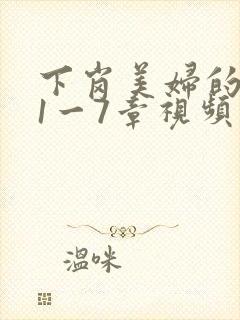 下岗美婦的
1一7章視頻
溫咪